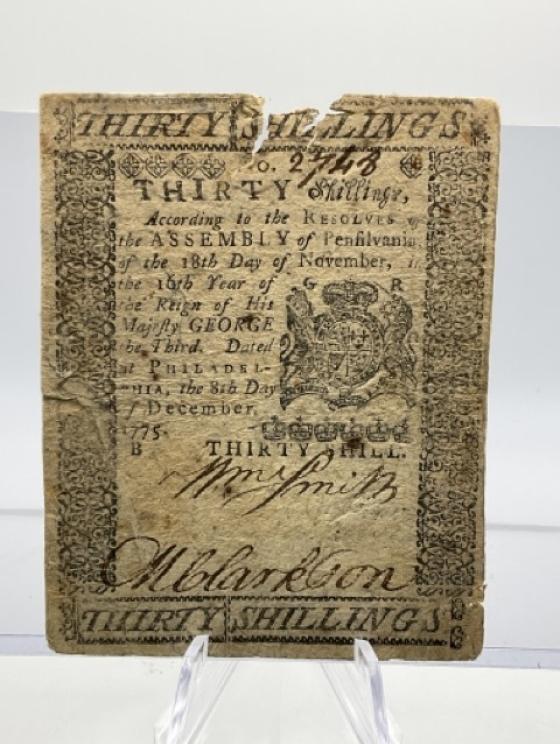 THIRTY SHILLINGS
No. 2743
THIRTY Shillings,
According to the RESOLVES of
the ASSEMBLY of Penſilvania,
of the 18th Day of November, in
the 16th Year of
the Reign of His
Majeſty GEORGE
the Third. Dated
at PHILADEL-
PHIA, the 8th Day
of December,
1775.
G R
B THIRTY SHILL.
Wm. Smith
M Clarkson
THIRTY SHILLINGS